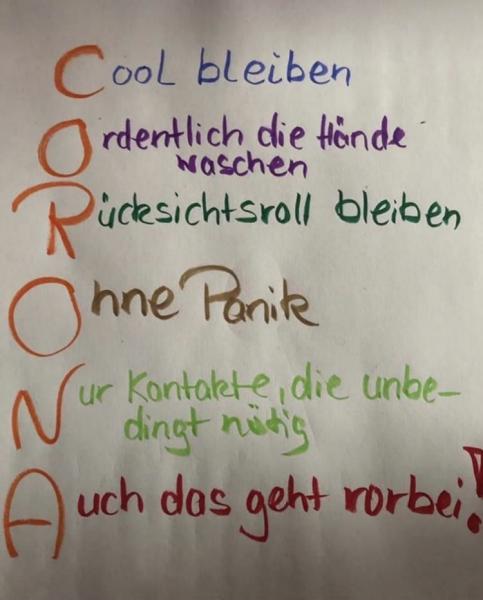 Cool bleiben
Ordentlich die Hände
waschen
Rücksichtsvoll bleiben
Ohne Panik
Nur Kontakte, die unbe-
dingt nötig
Auch das geht vorbei!